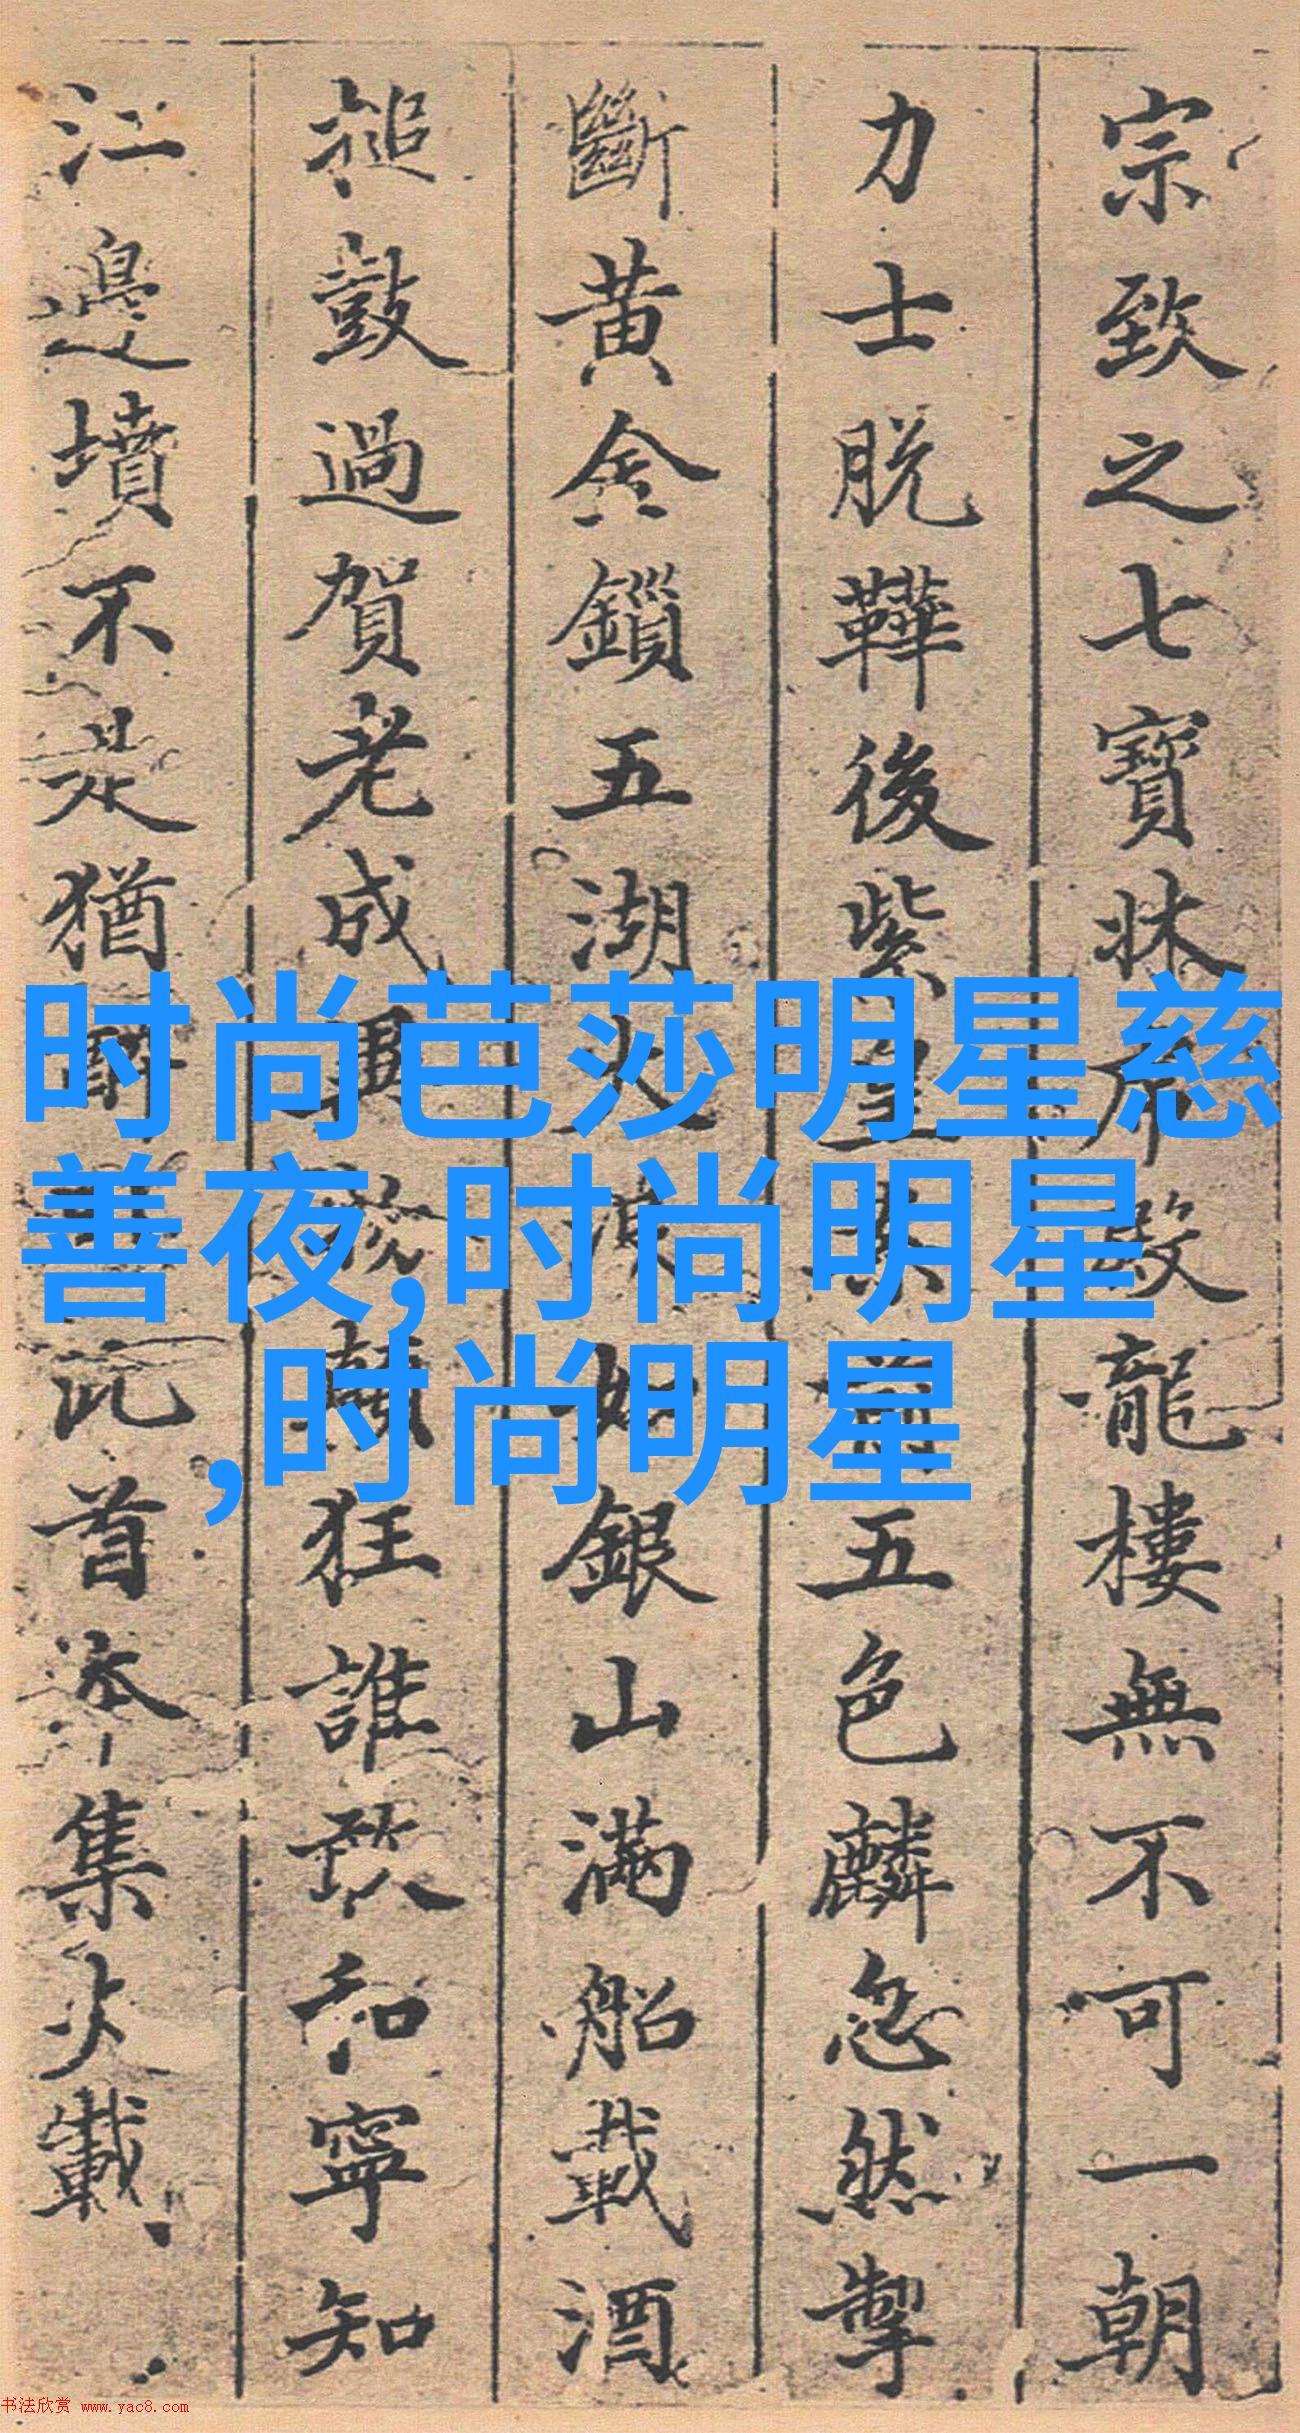 宗致之七寶牀
殿龍樓無不可一朝
力士脱鞾後紫皇
五色麟忽然掣
斷黃金鎖五湖大
如銀山滿船載酒
搥鼓過賀老成
狂誰敢和寧知
江邊墳不是猶
此首本集不載
时尚芭莎明星慈
善夜,时尚明星
,时尚明星
书法欣赏 www.yac8.com